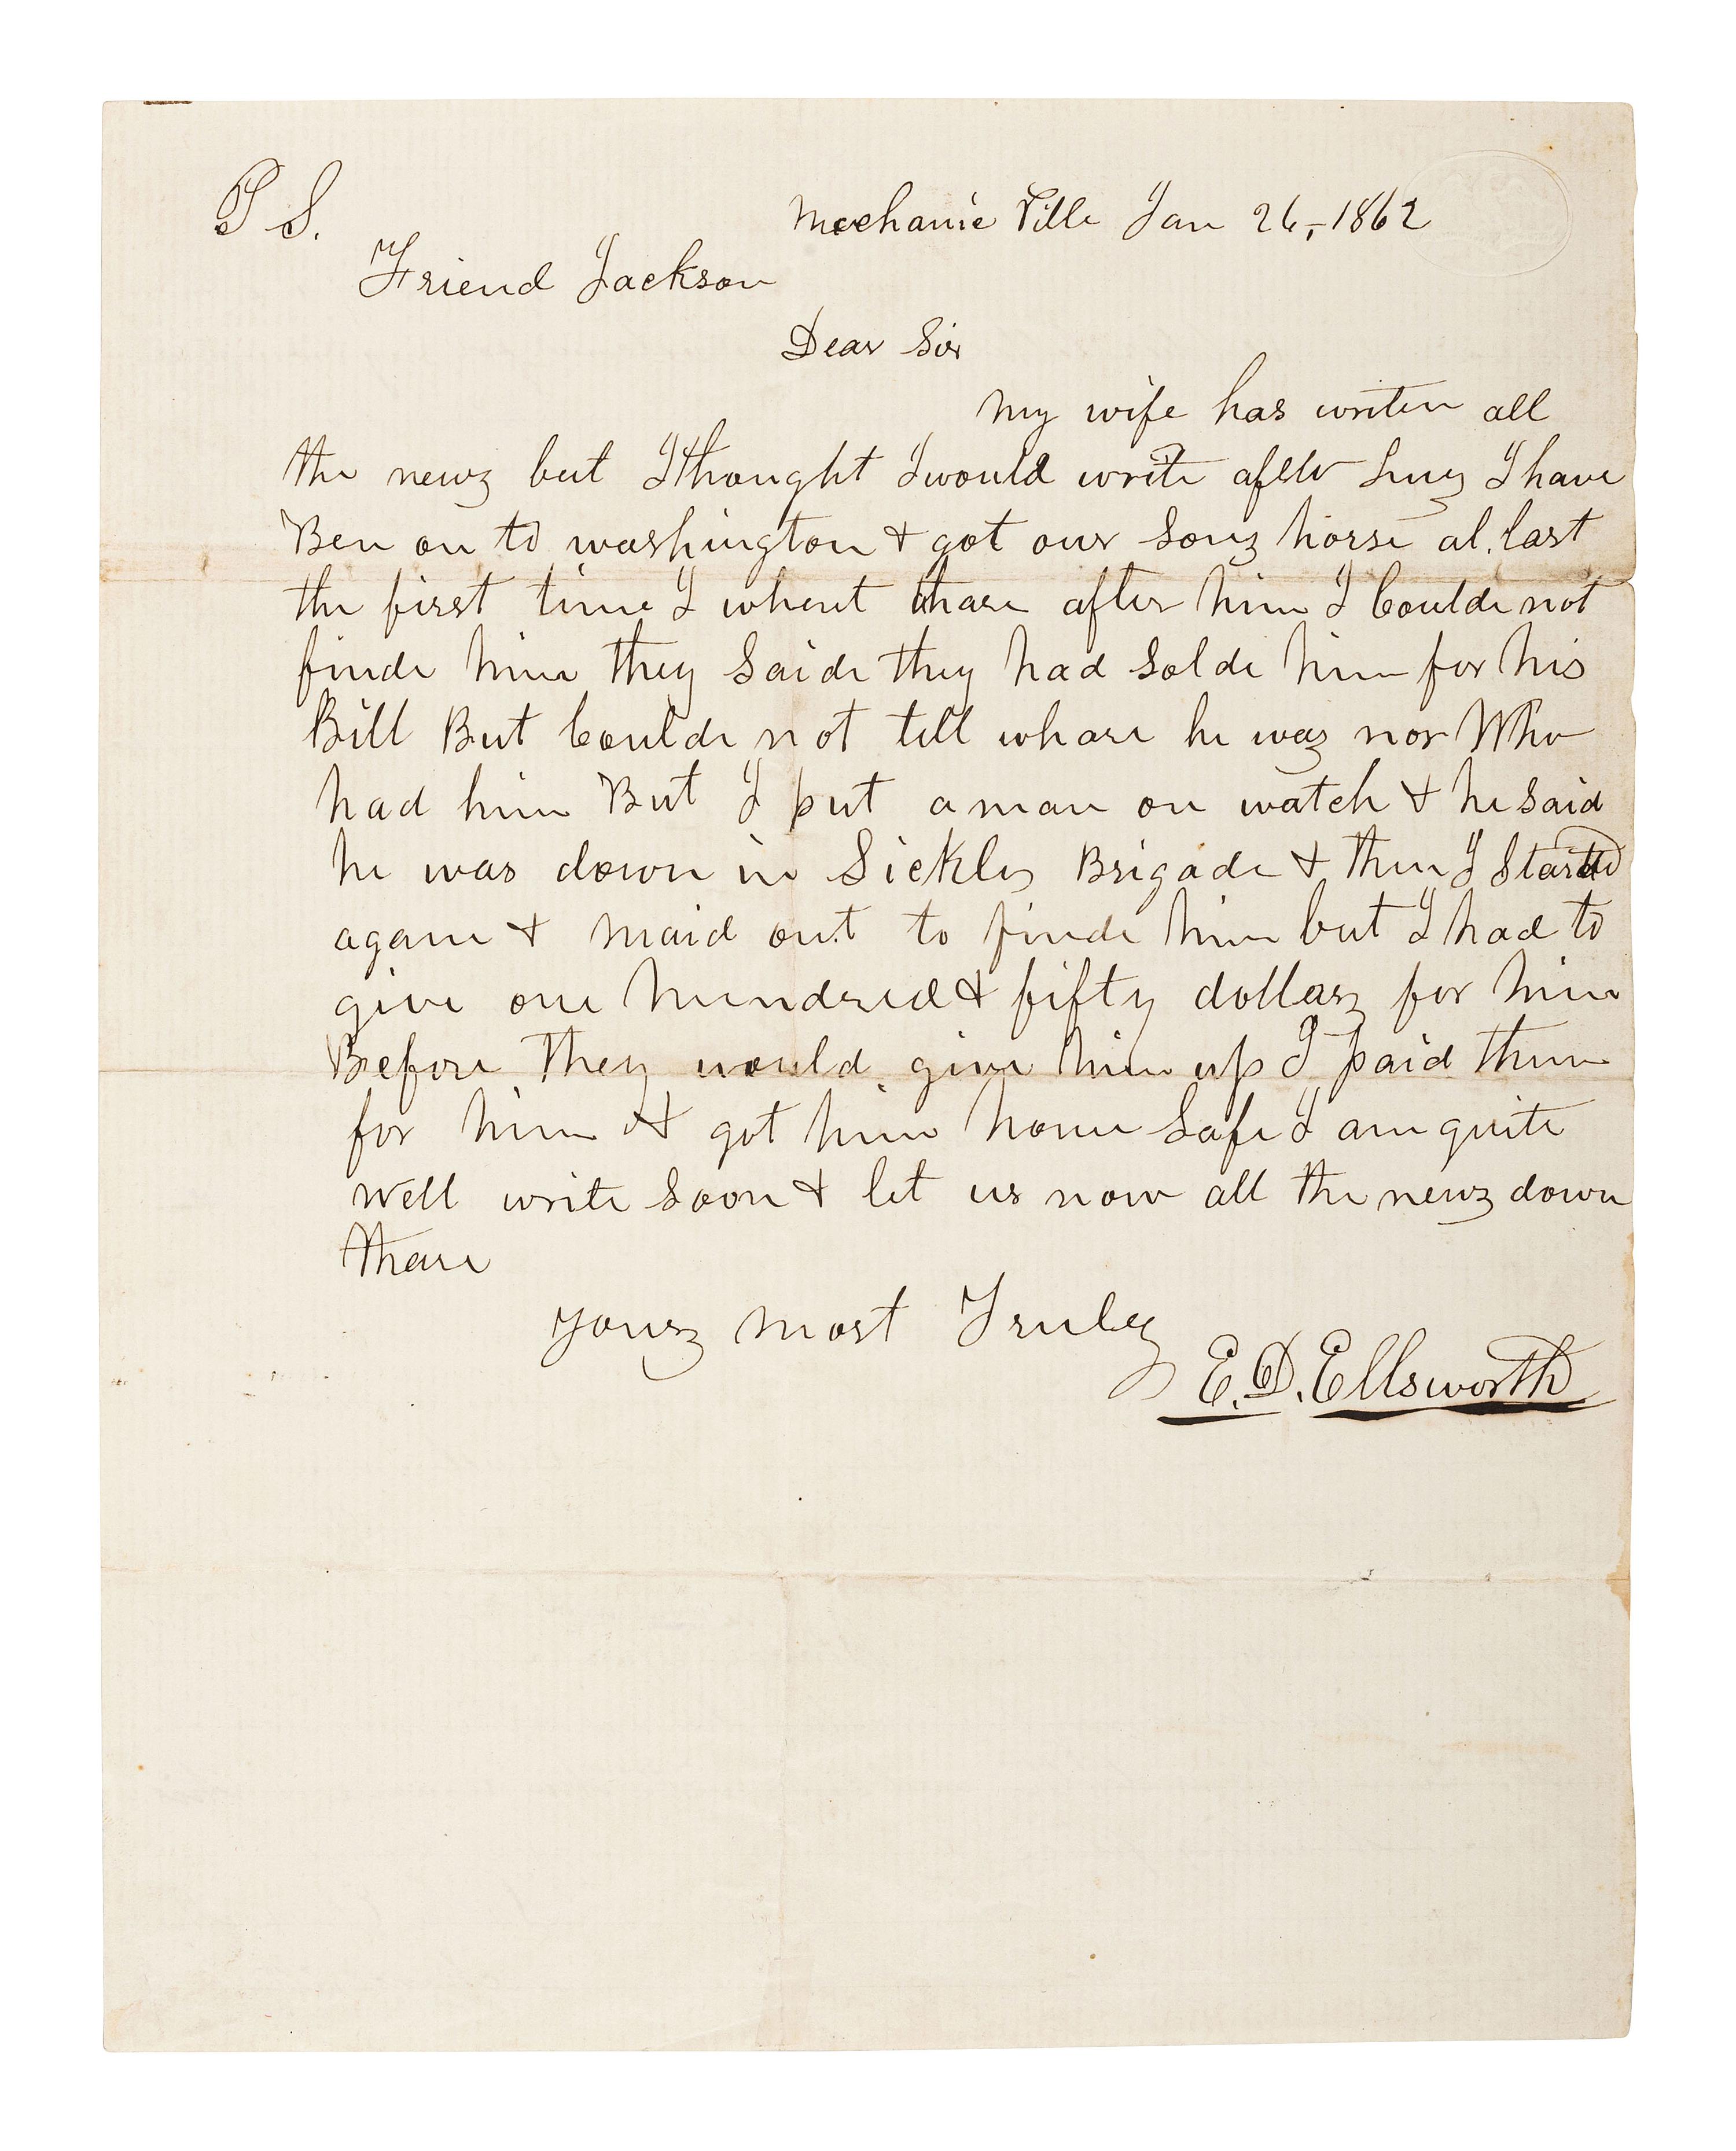 P S.
Mechanic Ville Jan 26,-1862
Friend Jackson
Dear Sir
My wife has writen all
the newz but I thought I would write a few linez I have
Ben on to washington & got our sonz horse at last
the first time I whent thare after him I Coulde not
finde him they saide they had solde him for his
Bill But Coulde not tell whare he waz nor Who
had him But I put a man on watch & he said
he was down in Sickles Brigade & then I Started
again & maid out to finde him but I had to
give one hundred & fifty dollarz for him
Before they would give him up I paid them
for him & got him home safe I am quite
well write soon & let us now all the newz down
thare
yourz most Truley
E. D. Ellsworth